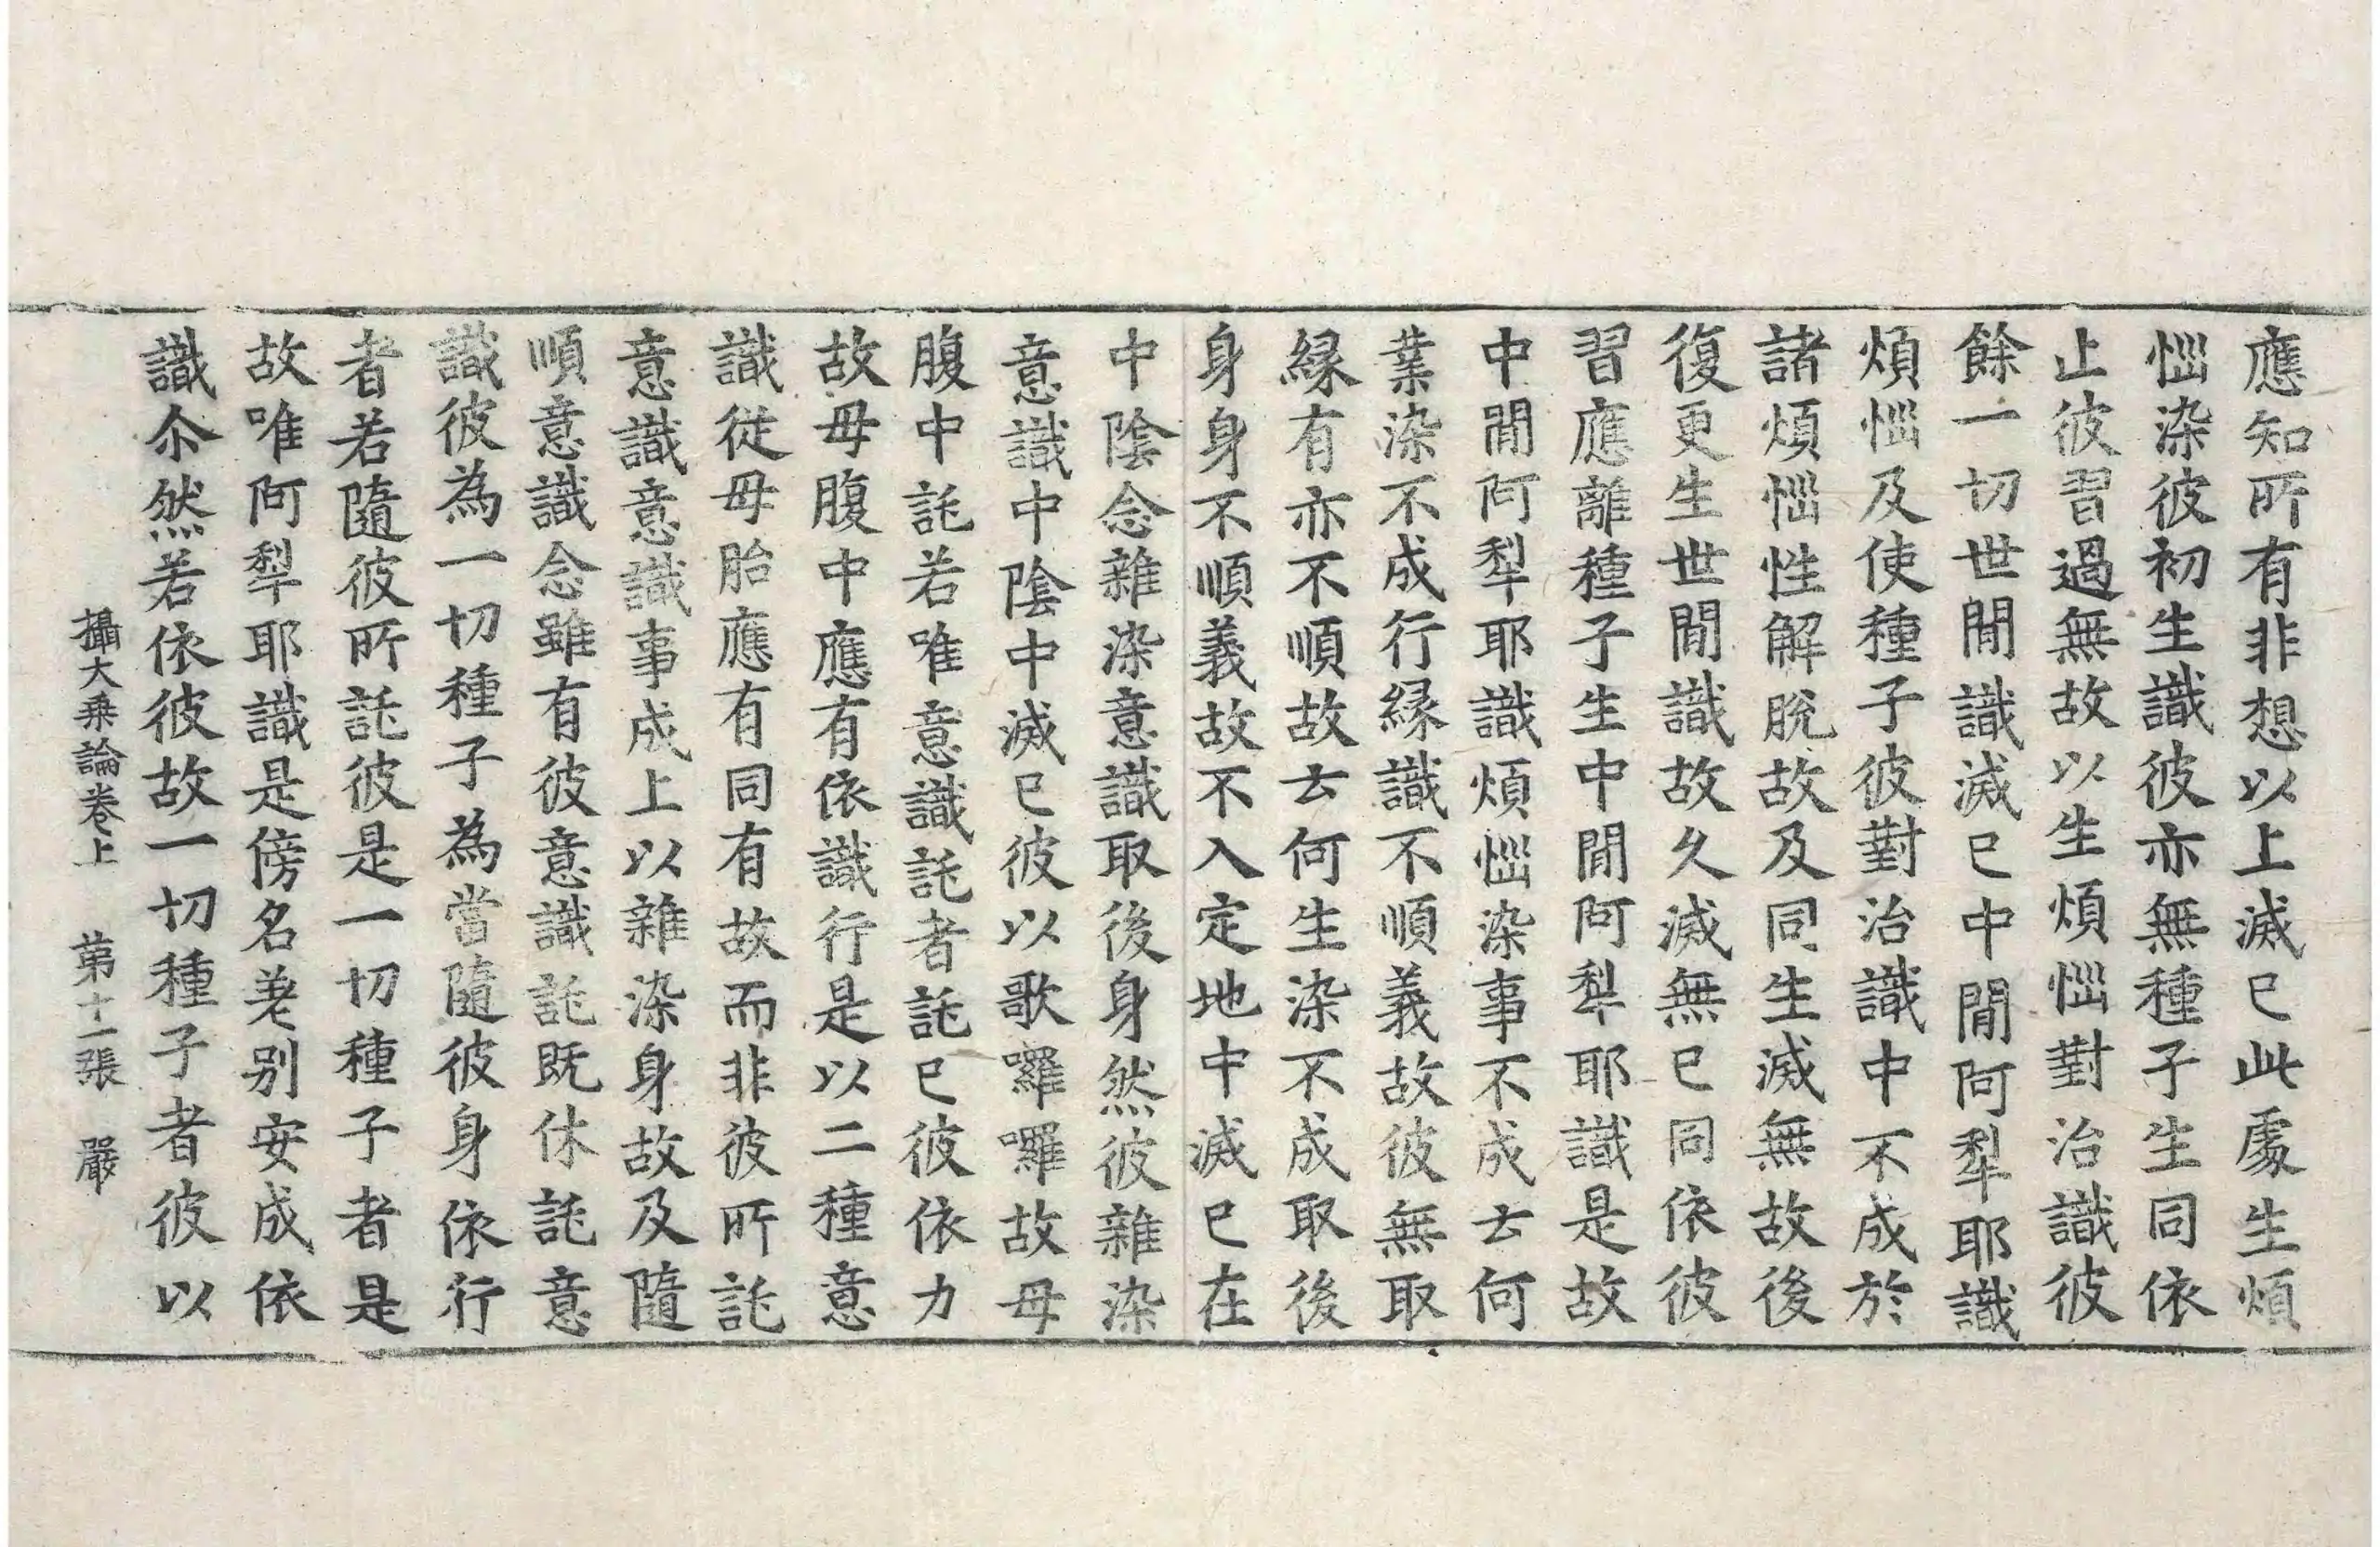 應知所有非想以上滅已此處生煩
惱染彼初生識彼亦無種子生同依
止彼習過無故以生煩惱對治識彼
餘一切世閒識滅已中閒阿犁耶識
煩惱及使種子彼對治識中不成於
諸煩惱性解脫故及同生滅無故後
復更生世閒識故久滅無已同依彼
習應離種子生中閒阿犁耶識是故
中閒阿犁耶識煩惱染事不成云何
業染不成行縁識不順義故彼無取
縁有亦不順故云何生染不成取後
身身不順義故不入定地中滅已在
中陰念雜染意識取後身然彼雜染
意識中陰中滅已彼以歌羅囉故母
腹中託若唯意識託者託已彼依力
故母腹中應有依識行是以二種意
識從母胎應有同有故而非彼所託
意識意識事成上以雜染身故及隨
順意識念雖有彼意識託既休託意
識彼為一切種子為當隨彼身依行
者若隨彼所託彼是一切種子者是
故唯阿犁耶識是傍名差别安成依
識尒然若依彼故一切種子者彼以
攝大乘論卷上 第十一張 嚴